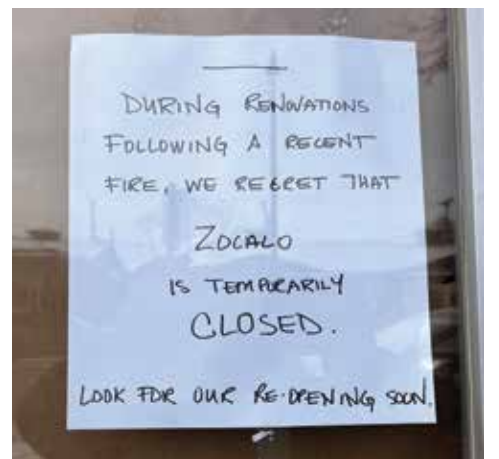 DURING RENOVATIONS
FOLLOWING A RECENT
FIRE, WE REGRET THAT
ZOCALO
IS TEMPORARILY
CLOSED.
LOOK FOR OUR RE-OPENING SOON.